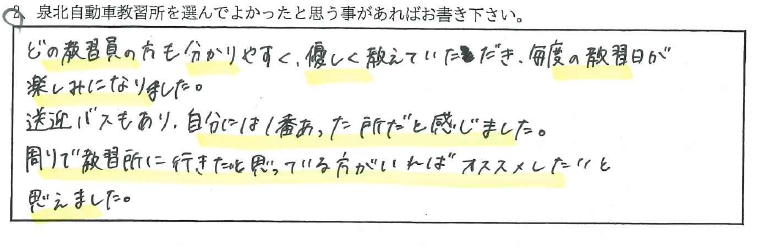 2 泉北自動車教習所を選んでよかったと思う事があればお書き下さい。
どの教習員の方も分かりやすく、優しく教えていただき、毎度の教習日が
楽しみになりました。
送迎バスもあり、自分には1番あった所だと感じました。
周りで教習所に行きたいと思っている方がいればオススメしたいと
思えました。